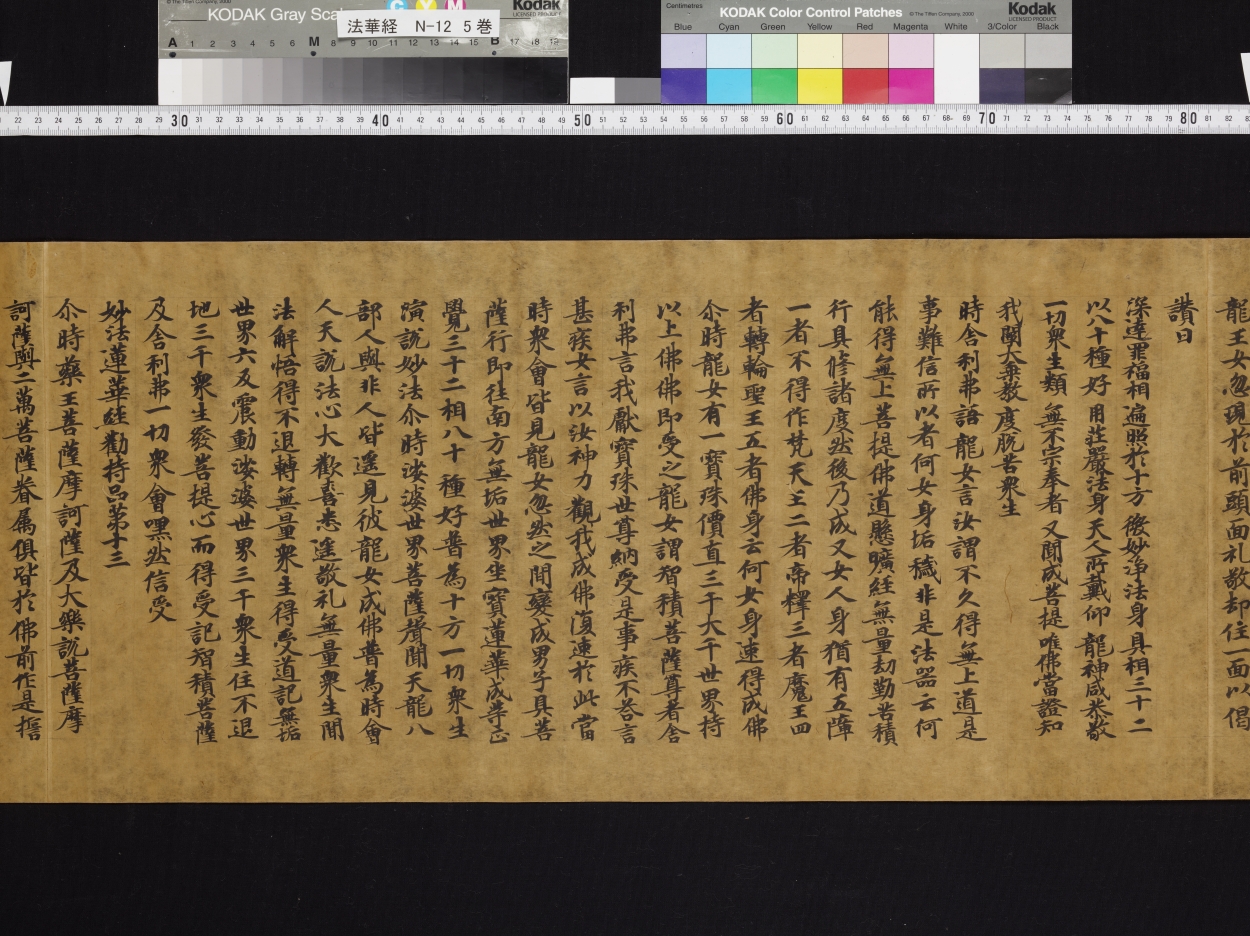 KODAK Gray Scale
C Y M
Kodak
LICENSED PRODUCT
法華経　N-12　5巻
A 1 2 3 4 5 6 M 8 9 10 11 12 13 14 15 B 17 18 19
Centimetres
KODAK Color Control Patches
© The Tiffen Company, 2000
Kodak
LICENSED PRODUCT
Blue Cyan Green Yellow Red Magenta White 3/Color Black
22 23 24 25 26 27 28 29 30 31 32 33 34 35 36 37 38 39 40 41 42 43 44 45 46 47 48 49 50 51 52 53 54 55 56 57 58 59 60 61 62 63 64 65 66 67 68 69 70 71 72 73 74 75 76 77 78 79 80 81 82
龍王女忽現於前頭面礼敬却住一面以偈
讃曰
深達罪福相遍照於十方微妙浄法身具相三十二
以八十種好用荘嚴法身天人所戴仰龍神咸恭敬
一切衆生類無不宗奉者又聞成菩提唯佛當證知
我闡大乗教度脱苦衆生
時舎利弗語龍女言汝謂不久得無上道是
事難信所以者何女身垢穢非是法器云何
能得無上菩提佛道懸曠経無量劫勤苦積
行具修諸度然後乃成又女人身猶有五障
一者不得作梵天王二者帝釋三者魔王四
者轉輪聖王五者佛身云何女身速得成佛
尒時龍女有一寶珠價直三千大千世界持
以上佛佛即受之龍女謂智積菩薩尊者舎
利弗言我獻寶珠世尊納受是事疾不荅言
甚疾女言以汝神力觀我成佛復速於此當
時衆會皆見龍女忽然之間變成男子具菩
薩行即往南方無垢世界坐寶蓮華成等正
覺三十二相八十種好普為十方一切衆生
演説妙法尒時娑婆世界菩薩聲聞天龍八
部人與非人皆遥見彼龍女成佛普為時會
人天説法心大歡喜悉遥敬礼無量衆生聞
法解悟得不退轉無量衆生得受道記無垢
世界六反震動娑婆世界三千衆生住不退
地三千衆生發菩提心而得受記智積菩薩
及舎利弗一切衆會嘿然信受
妙法蓮華経勸持品第十三
尒時藥王菩薩摩訶薩及大樂説菩薩摩
訶薩與二萬菩薩眷属俱皆於佛前作是誓